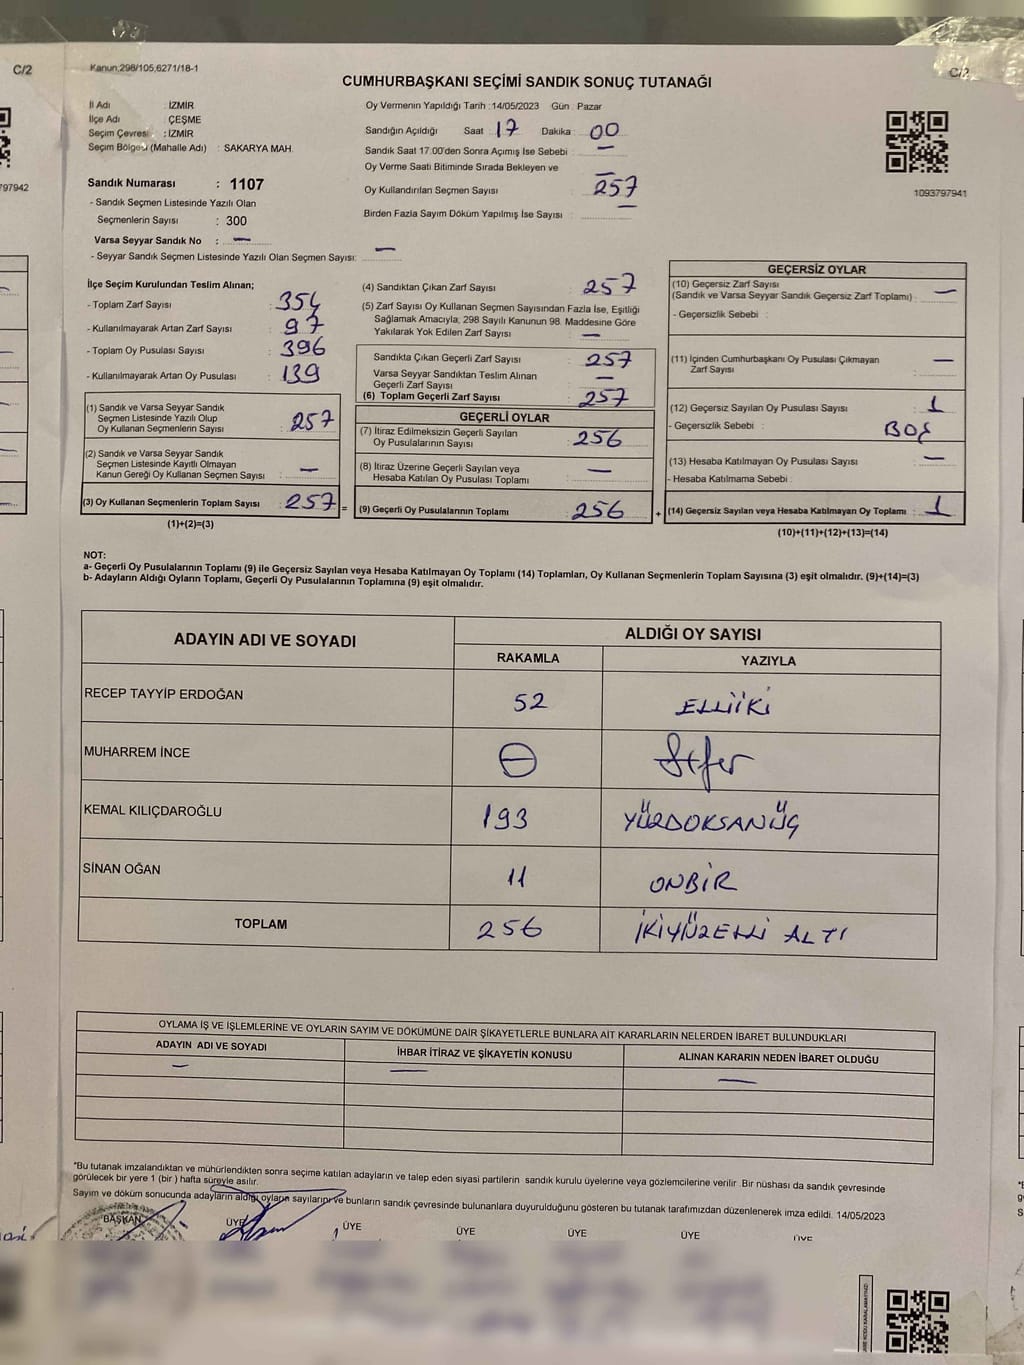 C/2
Kanun,298/105,6271/18-1
C/2
CUMHURBAŞKANI SEÇİMİ SANDIK SONUÇ TUTANAĞI
İl Adı : İZMİR
İlçe Adı : ÇEŞME
Seçim Çevresi : İZMİR
Seçim Bölgesi (Mahalle Adı) : SAKARYA MAH.
Sandık Numarası : 1107
- Sandık Seçmen Listesinde Yazılı Olan
Seçmenlerin Sayısı : 300
Varsa Seyyar Sandık No : —
- Seyyar Sandık Seçmen Listesinde Yazılı Olan Seçmen Sayısı: —
Oy Vermenin Yapıldığı Tarih :14/05/2023 Gün : Pazar
Sandığın Açıldığı Saat : 17 Dakika : 00
Sandık Saat 17:00'den Sonra Açımış İse Sebebi : —
Oy Verme Saati Bitiminde Sırada Bekleyen ve
Oy Kullandırılan Seçmen Sayısı : 257
Birden Fazla Sayım Döküm Yapılmış İse Sayısı : —
797942
1093797941
İlçe Seçim Kurulundan Teslim Alınan;
- Toplam Zarf Sayısı : 354
- Kullanılmayarak Artan Zarf Sayısı : 97
- Toplam Oy Pusulası Sayısı : 396
- Kullanılmayarak Artan Oy Pusulası : 139
(1) Sandık ve Varsa Seyyar Sandık
Seçmen Listesinde Yazılı Olup
Oy Kullanan Seçmenlerin Sayısı : 257
(2) Sandık ve Varsa Seyyar Sandık
Seçmen Listesinde Kayıtlı Olmayan
Kanun Gereği Oy Kullanan Seçmen Sayısı : —
(3) Oy Kullanan Seçmenlerin Toplam Sayısı : 257 =
(1)+(2)=(3)
(4) Sandıktan Çıkan Zarf Sayısı : 257
(5) Zarf Sayısı Oy Kullanan Seçmen Sayısından Fazla İse, Eşitliği
Sağlamak Amacıyla; 298 Sayılı Kanunun 98. Maddesine Göre
Yakılarak Yok Edilen Zarf Sayısı : —
Sandıkta Çıkan Geçerli Zarf Sayısı : 257
Varsa Seyyar Sandıktan Teslim Alınan
Geçerli Zarf Sayısı : —
(6) Toplam Geçerli Zarf Sayısı : 257
GEÇERLİ OYLAR
(7) İtiraz Edilmeksizin Geçerli Sayılan
Oy Pusulalarının Sayısı : 256
(8) İtiraz Üzerine Geçerli Sayılan veya
Hesaba Katılan Oy Pusulası Toplamı : —
(9) Geçerli Oy Pusulalarının Toplamı : 256 +
GEÇERSİZ OYLAR
(10) Geçersiz Zarf Sayısı
(Sandık ve Varsa Seyyar Sandık Geçersiz Zarf Toplamı) : —
- Geçersizlik Sebebi :
(11) İçinden Cumhurbaşkanı Oy Pusulası Çıkmayan
Zarf Sayısı : —
(12) Geçersiz Sayılan Oy Pusulası Sayısı : 1
- Geçersizlik Sebebi : BOŞ
(13) Hesaba Katılmayan Oy Pusulası Sayısı : —
- Hesaba Katılmama Sebebi :
(14) Geçersiz Sayılan veya Hesaba Katılmayan Oy Toplamı : 1
(10)+(11)+(12)+(13)=(14)
NOT:
a- Geçerli Oy Pusulalarının Toplamı (9) ile Geçersiz Sayılan veya Hesaba Katılmayan Oy Toplamı (14) Toplamları, Oy Kullanan Seçmenlerin Toplam Sayısına (3) eşit olmalıdır. (9)+(14)=(3)
b- Adayların Aldığı Oyların Toplamı, Geçerli Oy Pusulalarının Toplamına (9) eşit olmalıdır.
ADAYIN ADI VE SOYADI
ALDIĞI OY SAYISI
RAKAMLA YAZIYLA
RECEP TAYYİP ERDOĞAN 52 ELLİİKİ
MUHARREM İNCE Θ Sıfır
KEMAL KILIÇDAROĞLU 193 YÜZDOKSANÜÇ
SİNAN OĞAN 11 ONBİR
TOPLAM 256 İKİYÜZELLİ ALTI
OYLAMA İŞ VE İŞLEMLERİNE VE OYLARIN SAYIM VE DÖKÜMÜNE DAİR ŞİKAYETLERLE BUNLARA AİT KARARLARIN NELERDEN İBARET BULUNDUKLARI
ADAYIN ADI VE SOYADI İHBAR İTİRAZ VE ŞİKAYETİN KONUSU ALINAN KARARIN NEDEN İBARET OLDUĞU
— — —
*Bu tutanak imzalandıktan ve mühürlendikten sonra seçime katılan adayların ve talep eden siyasi partilerin sandık kurulu üyelerine veya gözlemcilerine verilir. Bir nüshası da sandık çevresinde
görülecek bir yere 1 (bir ) hafta süreyle asılır.
Sayım ve döküm sonucunda adayların aldığı oyların sayılarını ve bunların sandık çevresinde bulunanlara duyurulduğunu gösteren bu tutanak tarafımızdan düzenlenerek imza edildi. 14/05/2023
BAŞKAN ÜYE ÜYE ÜYE ÜYE ÜYE ÜYE